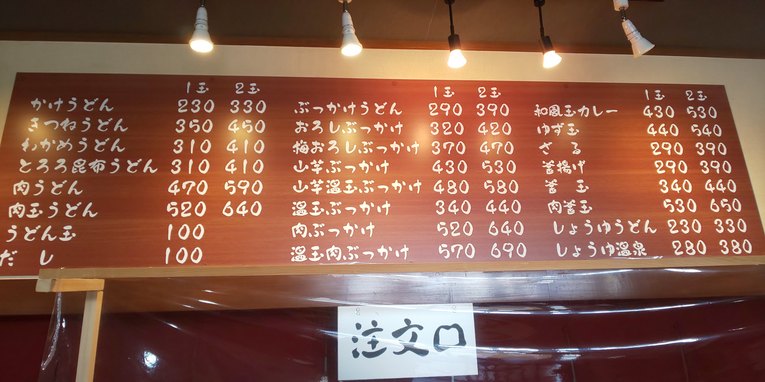 1玉 2玉
かけうどん 230 330
きつねうどん 350 450
わかめうどん 310 410
とろろ昆布うどん 310 410
肉うどん 470 590
肉玉うどん 520 640
うどん玉 100
だし 100
1玉 2玉
ぶっかけうどん 290 390
おろしぶっかけ 320 420
梅おろしぶっかけ 370 470
山芋ぶっかけ 430 530
山芋温玉ぶっかけ 480 580
温玉ぶっかけ 340 440
肉ぶっかけ 520 640
温玉肉ぶっかけ 570 690
1玉 2玉
和風玉カレー 430 530
ゆず玉 440 540
ざる 290 390
釜揚げ 290 390
釜玉 340 440
肉釜玉 530 650
しょうゆうどん 230 330
しょうゆ温泉 280 380
注文口